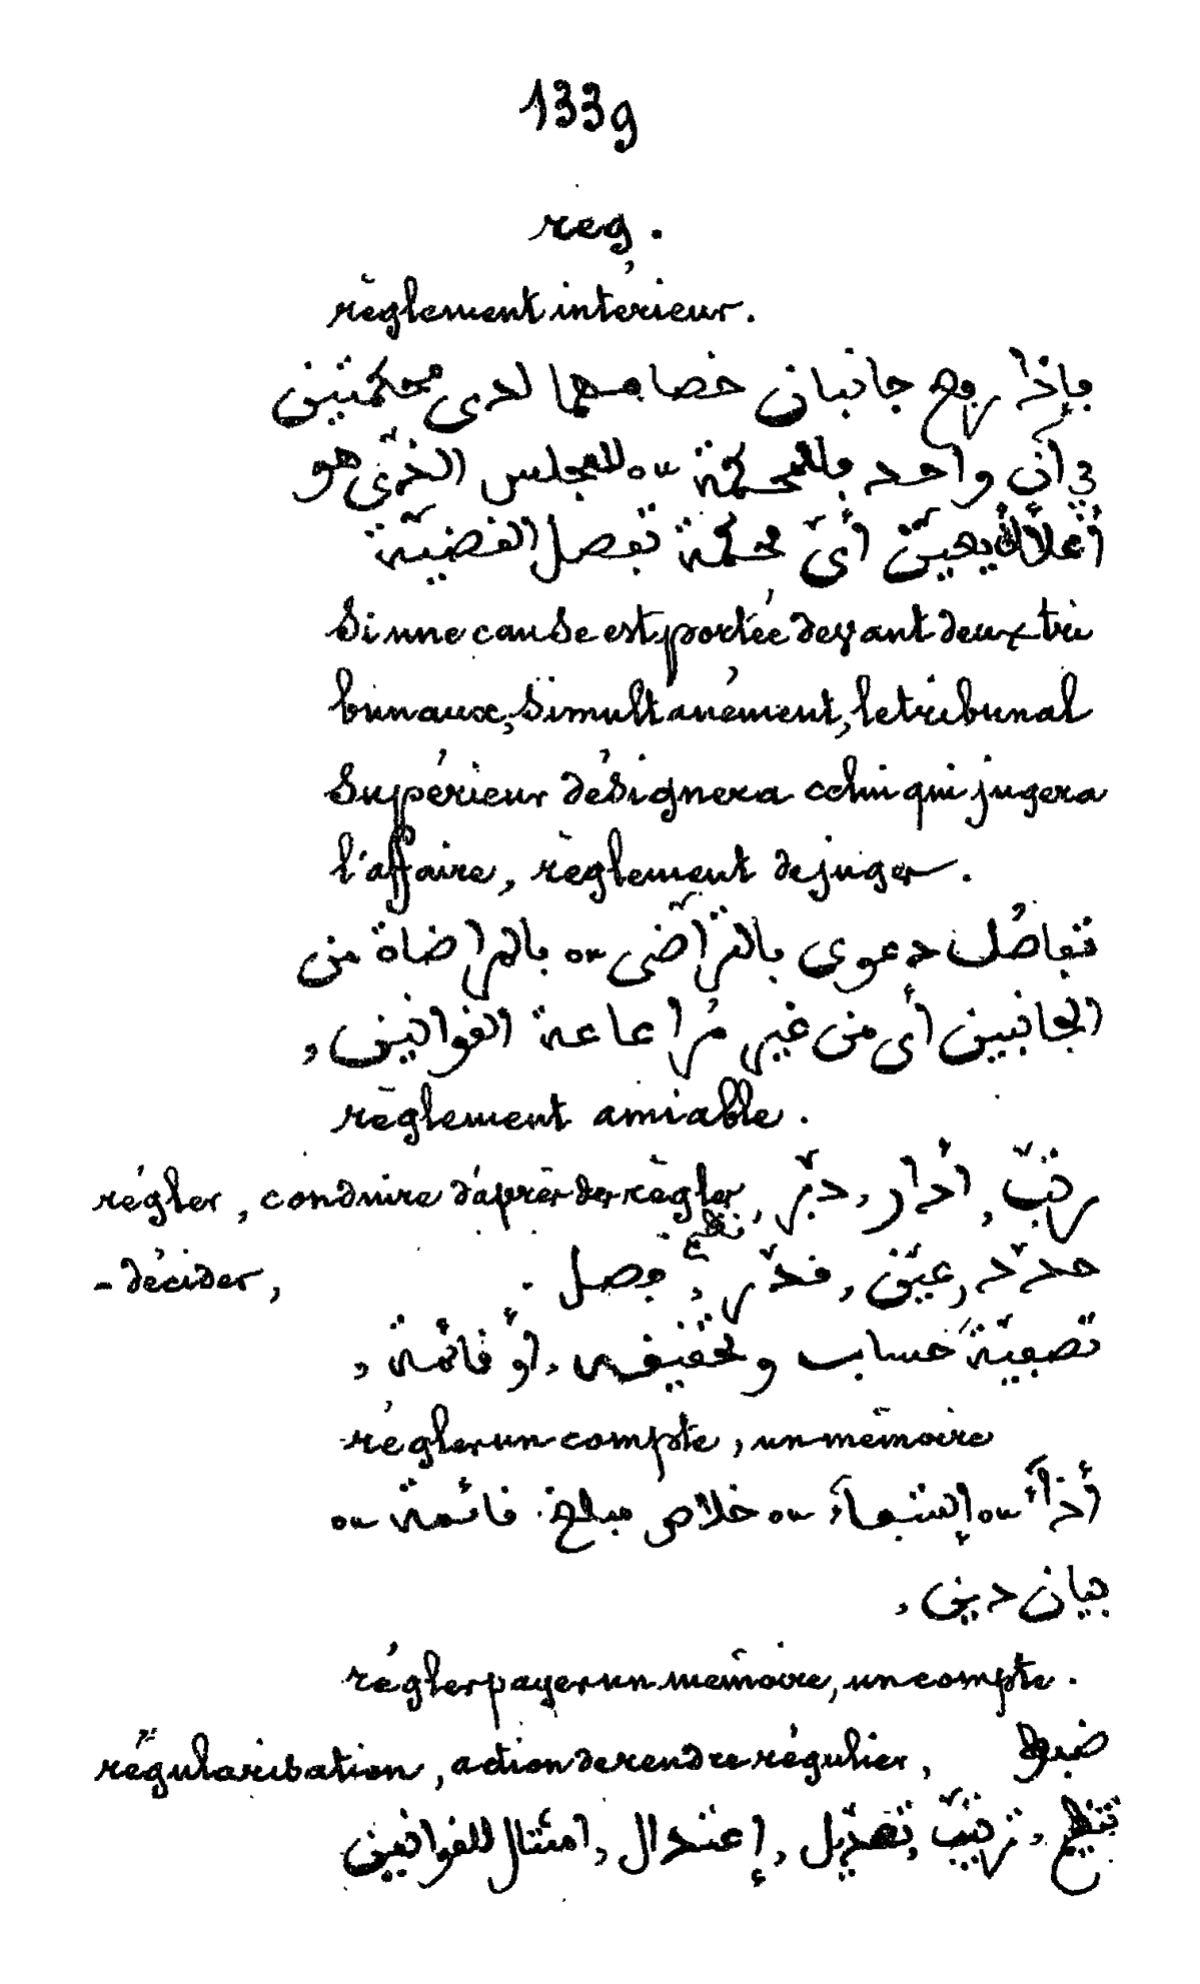 1339
reg.
règlement intérieur.
فإذا رفع جانبان خصامهما لدى محكمتين
في آن واحد فللمحكمة ou للمجلس الذي هو
أعلا يعين أيّ محكمة تفصل القضيّة
Si une cause est portée devant deux tri
bunaux, simultanément, le tribunal
supérieur désignera celui qui jugera
l'affaire, règlement de juger.
تفاصُل دعوى بالتراضي ou بالمراضاة من
الجانبين أي من غير مُراعاعة القوانين,
règlement amiable.
régler, conduire d'après des règles, رتّب, أدار, دبّر,
نظم
- décider, حدّد, عيّن, قدّر, فصل.
تصفيّة حساب وتحقيقه, أو قائمة,
régler un compte, un mémoire
أدآء ou إستيفآء ou خلاص مبلغ. قائمة ou
بيان دين,
régler payer un mémoire, un compte.
régularisation, action de rendre régulier, ضبط
تنظيم, ترتيب, تعديل, إعتدال, امتثال للقوانين